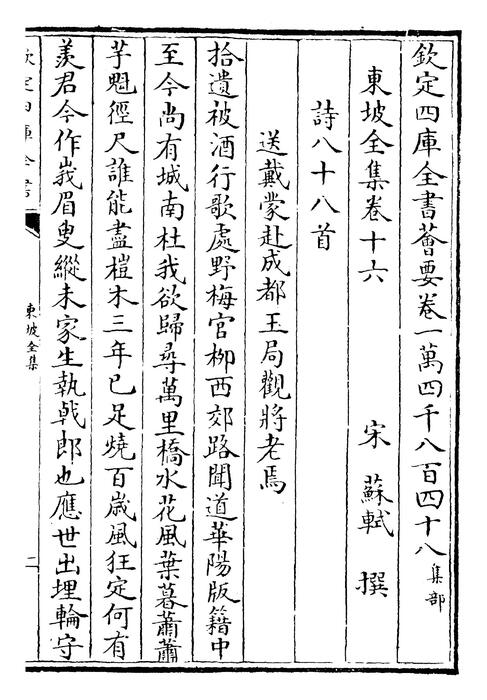 欽定四庫全書薈要卷一萬四千八百四十八集部
東坡全集卷十六 宋 蘇軾 撰
詩八十八首
送戴蒙赴成都玉局觀將老焉
拾遺被酒行歌處野梅官栁西郊路聞道華陽版籍中
至今尚有城南杜我欲歸尋萬里橋水花風葉暮蕭蕭
芋魁徑尺誰能盡榿木三年已足燒百歲風狂定何有
羨君今作峩眉叟縱未家生執㦸郎也應世出埋輪守
欽定四庫全書
東坡全集
二